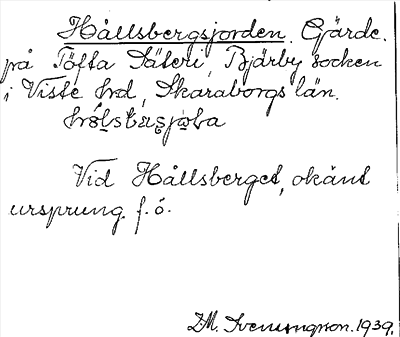 Hållsbergsjorden. Gärde.
på Töfta Säteri, Bjärby socken
i Viste hrd, Skaraborgs län.
Vid Hållsberget, okänt
ursprung f. ö.
D.M. Svenungson. 1939.